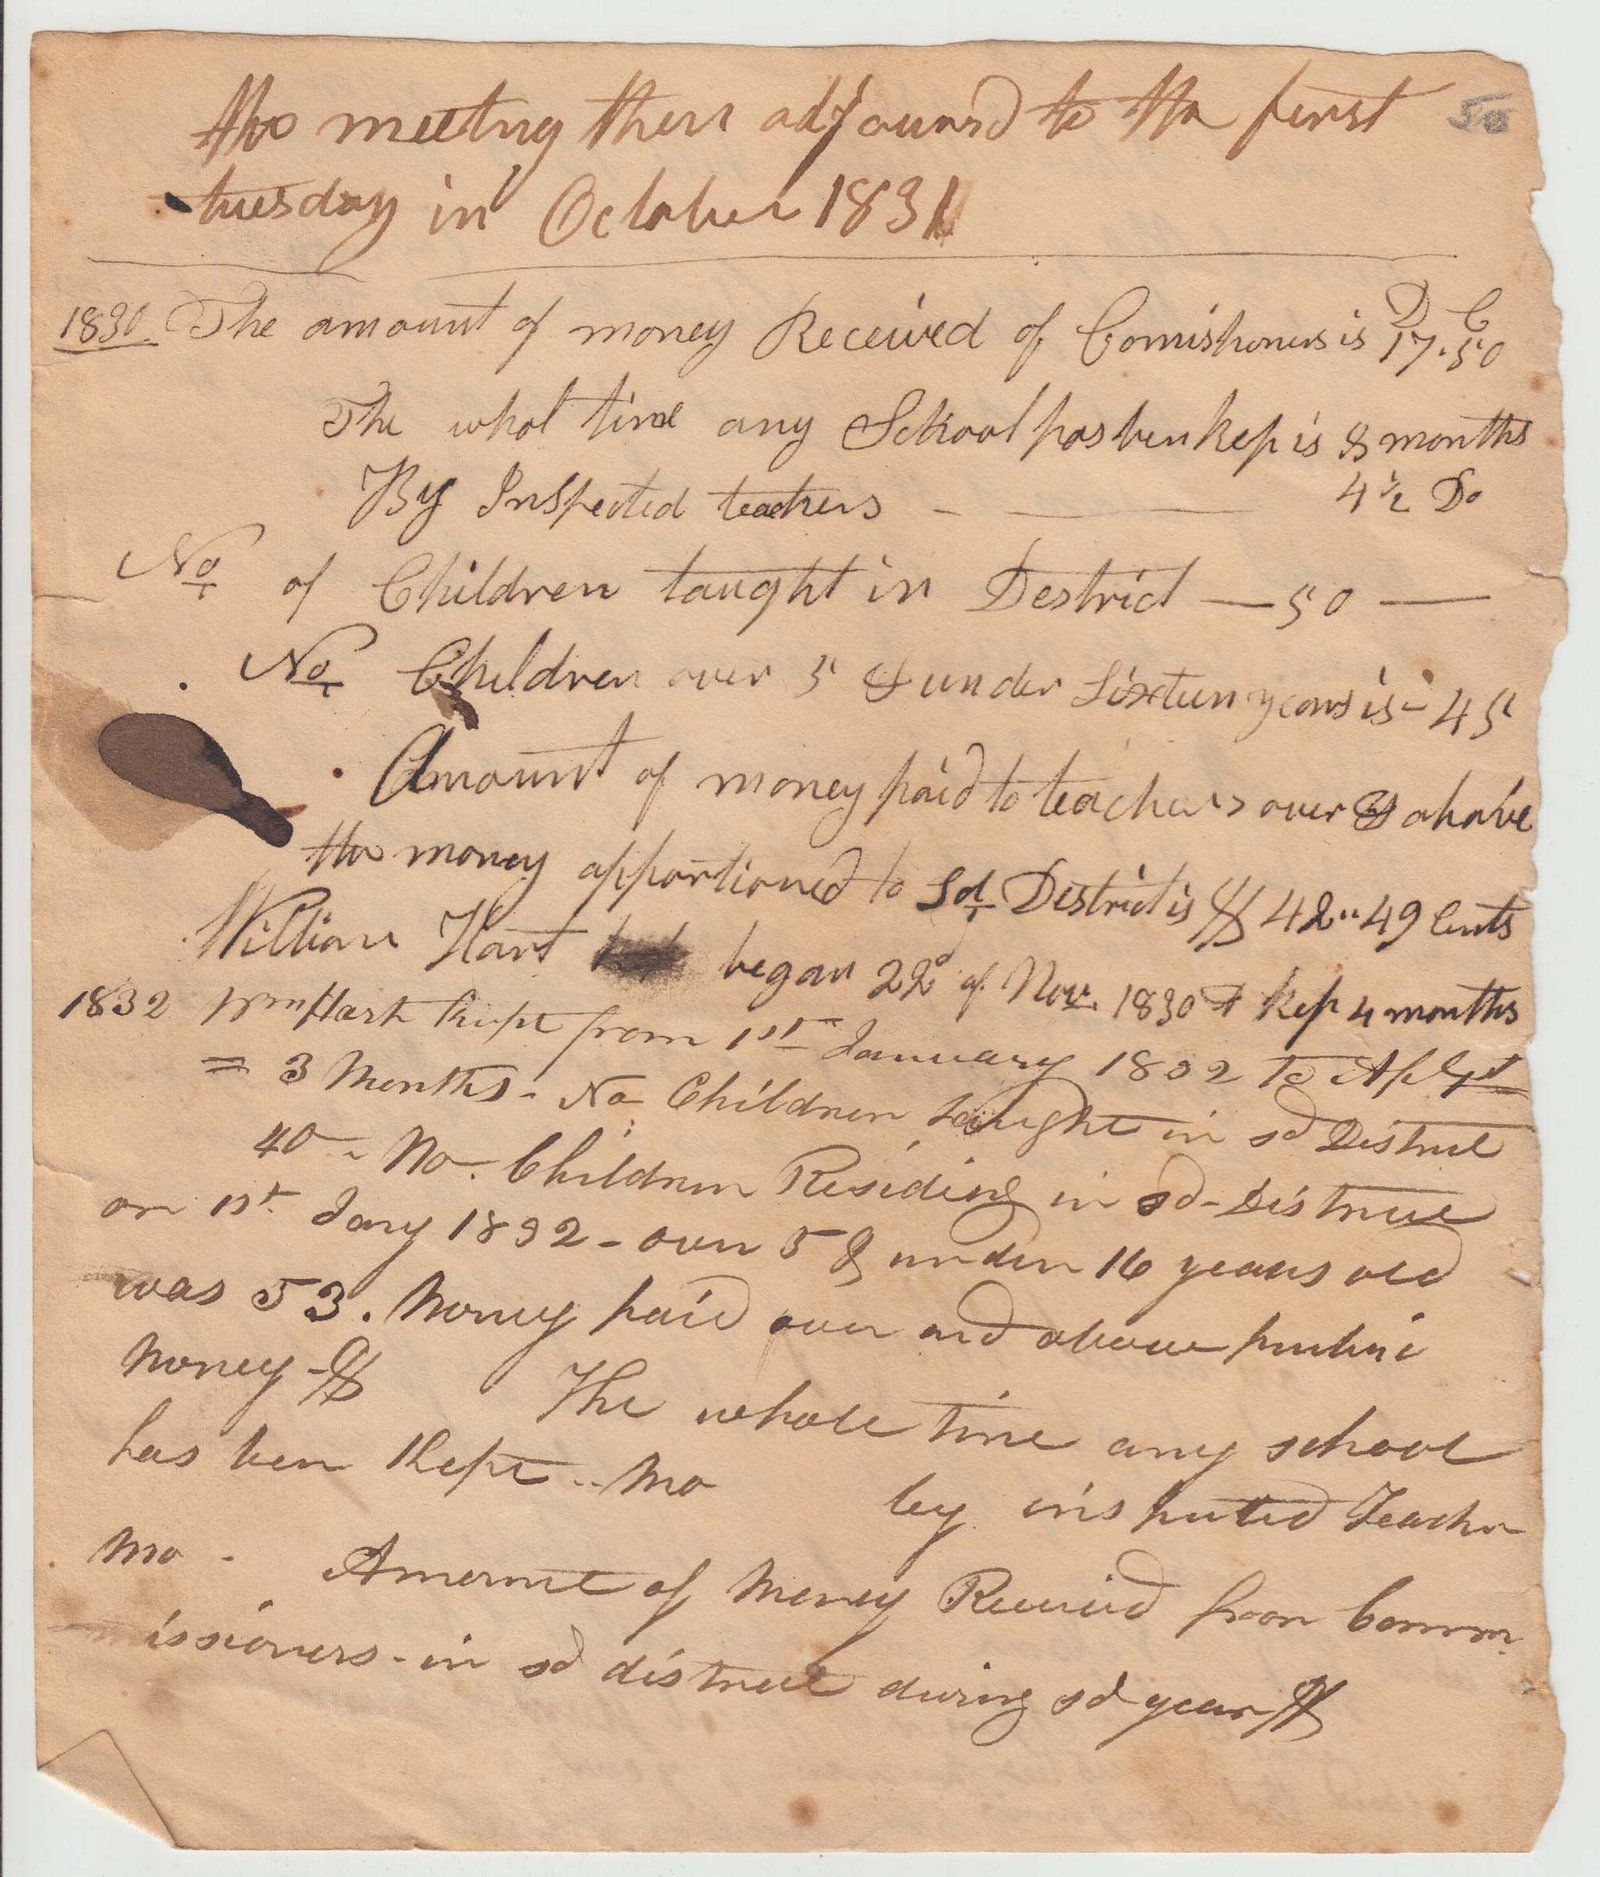 the meeting then adjournd to the first 50
tuesday in October 1831
1830. The amount of money Received of Comishoners is D C 17.50
The whol time any School has ben kep is 8 months
By Inspected teachers - — 4 1/2 Do
No of Children taught in Destrict — 50 —
No Children over 5 & under Sixteen years is - 45
Amount of money paid to teachers over & above
the money apportioned to Sd District is $ 42" 49 Cents
William Hart began 22d of Nov. 1830 & kep 4 months
1832 Wm Hart Kept from 1st January 1832 to Apl 1st
= 3 Months - No Children taught in sd District
40 - No. Children Residing in sd - District
on 1st Jany 1832 - over 5 & under 16 years old
was 53. Money paid over and above public
Money - $ The whole time any school
has ben Kept .. Mo by inspected Teacher
Mo - Amount of Money Received from Comm
issioners - in sd district during sd year $